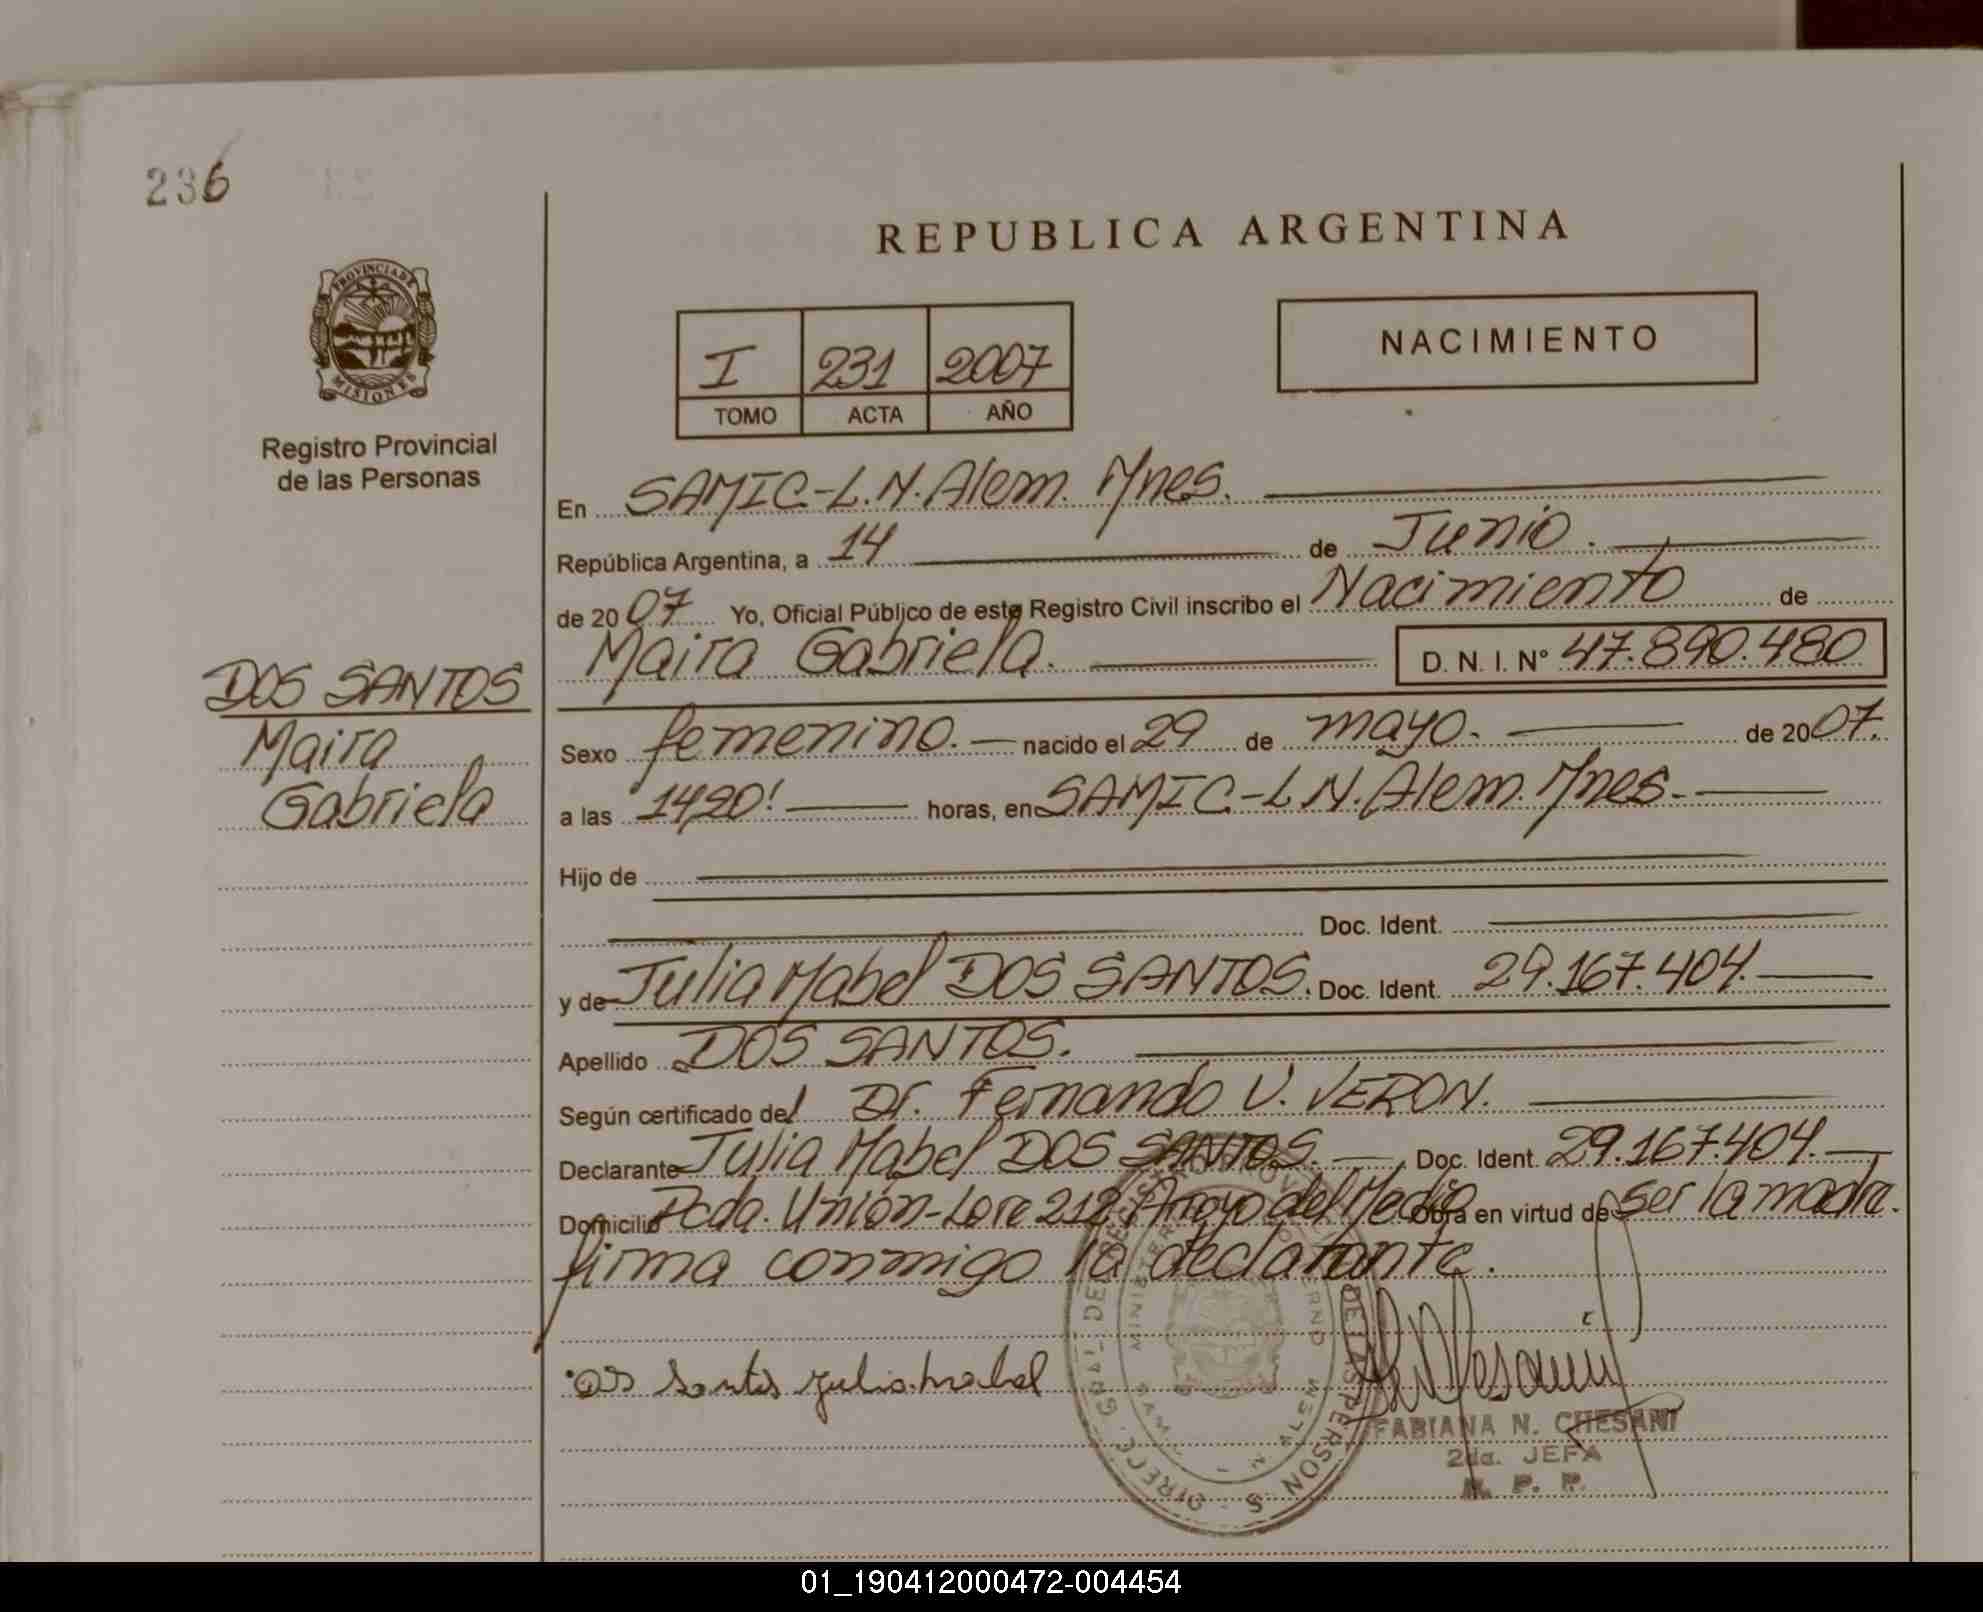 236
REPUBLICA ARGENTINA
PROVINCIA DE MISIONES
Registro Provincial
de las Personas
I 231 2007
TOMO ACTA AÑO
NACIMIENTO
En SAMIC-L.N.Alem. Mnes.
República Argentina, a 14 de Junio.
de 2007 Yo, Oficial Público de este Registro Civil inscribo el Nacimiento de
Maira Gabriela. D. N. I. Nº 47.890.480
DOS SANTOS
Maira
Gabriela
Sexo femenino. nacido el 29 de mayo. de 2007.
a las 1420! horas, en SAMIC-L.N.Alem. Mnes.
Hijo de
Doc. Ident.
y de Julia Mabel DOS SANTOS. Doc. Ident. 29.167.404.
Apellido DOS SANTOS.
Según certificado del Dr. Fernando V. VERON.
Declarante Julia Mabel DOS SANTOS. Doc. Ident. 29.167.404.
Domicilio Pcda. Unión-Lote 212 Arroyo del Medio Obra en virtud de ser la madre.
firma conmigo la declarante.
Dos Santos Julia Mabel
FABIANA N. CHESANI
2da. JEFA
R. P. P.
01_190412000472-004454